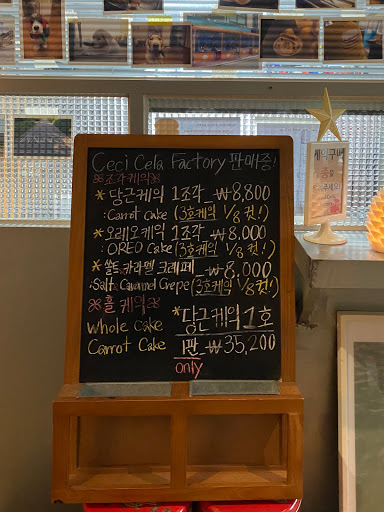 Ceci Cela Factory 판매중!
※조각케익※
* 당근케익 1조각_₩8,800
: Carrot Cake (3호케익 1/8 컷!)
* 오레오케익 1조각_₩8.000
: OREO Cake (3호케익 1/8 컷!)
* 쏠트 카라멜 크레페_₩8,000
: Salt Caramel Crepe (3호케익 1/8 컷!)
※홀케익※
Whole Cake *당근케익 1호
Carrot Cake 1판_₩35,200
only